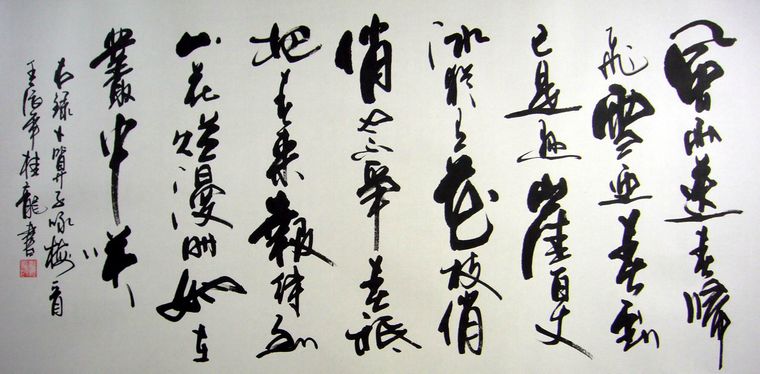 風雨送春歸
飛雪迎春到
已是懸崖百丈
冰犹有花枝俏
俏也不爭春祗
把春來報待到
山花爛漫時她在
叢中笑
右録卜算子咏梅一首
年桂龍書